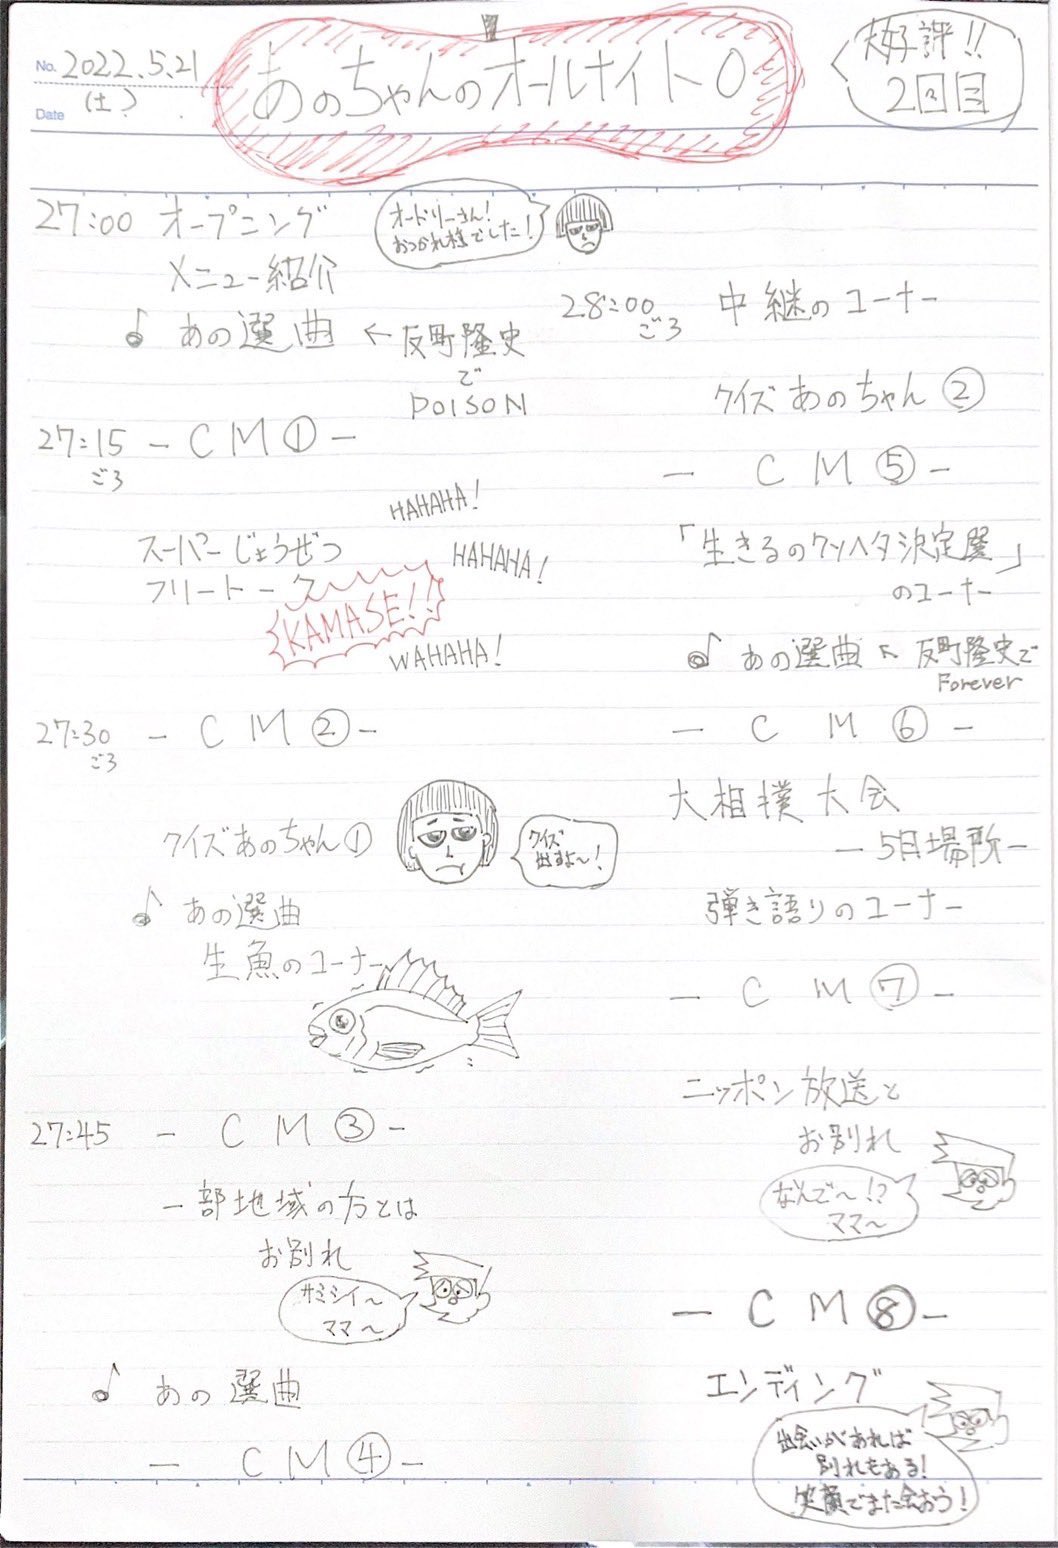 No. 2022.5.21
Date (土)
あのちゃんのオールナイト0
大好評!!
2回目
27:00 オープニング
オードリーさん!
おつかれ様でした!
メニュー紹介
♪ あの選曲 ← 反町隆史
で
POISON
27:15 - CM① -
ごろ
HAHAHA!
スーパーじょうぜつ
HAHAHA!
フリートーク
KAMASE!!
WAHAHA!
27:30 - CM② -
ごろ
クイズあのちゃん①
クイズ
出すよ〜!
♪ あの選曲
生魚のコーナー
27:45 - CM③ -
一部地域の方とは
お別れ
サミシイ〜
ママ〜
♪ あの選曲
- CM④ -
28:00 中継のコーナー
ごろ
クイズあのちゃん②
- CM⑤ -
「生きるのクソヘタ決定戦」
のコーナー
♪ あの選曲 ← 反町隆史で
Forever
- CM⑥ -
大相撲大会
- 5月場所 -
弾き語りのコーナー
- CM⑦ -
ニッポン放送と
お別れ
なんで〜!?
ママ〜
- CM⑧ -
エンディング
出会いがあれば
別れもある!
笑顔でまた会おう!